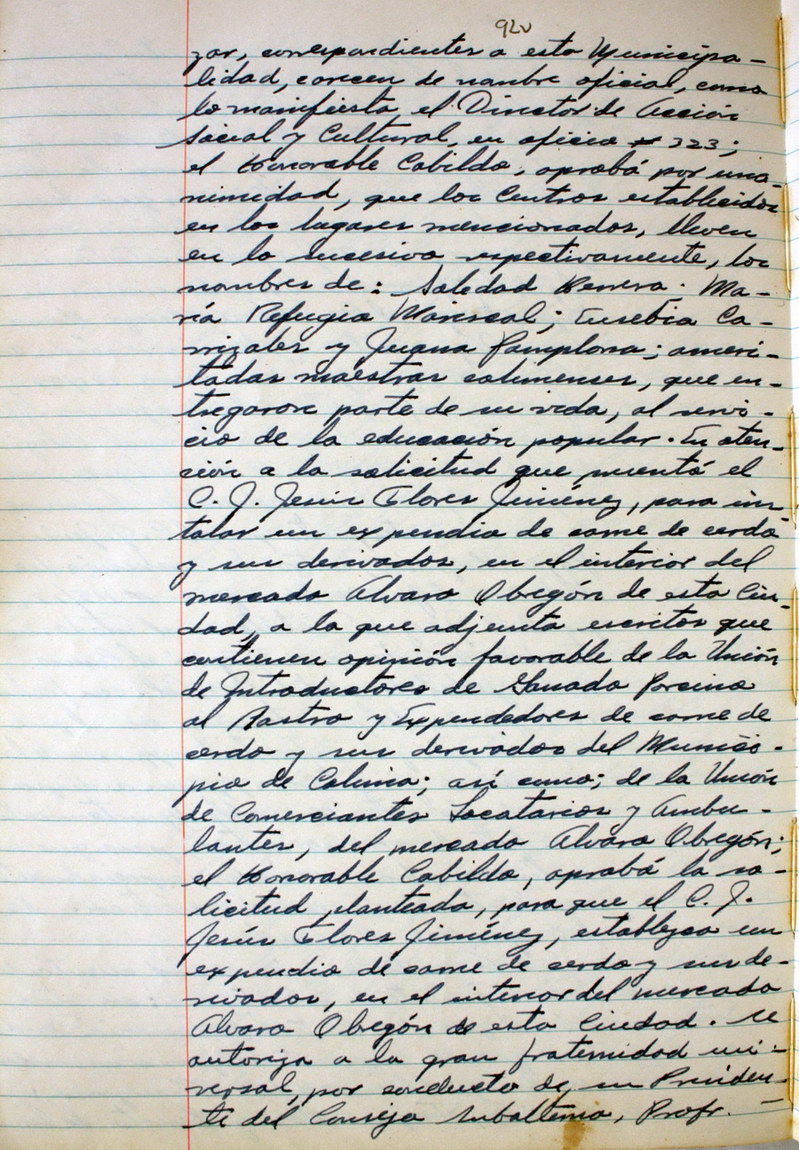 92v
zar, correspondientes a esta Municipa-
lidad, carecen de nombre oficial, como
lo manifiesta el Director de Acción
Social y Cultural, en oficio # 323;
el Honorable Cabildo, aprobó por una-
nimidad, que los Centros establecidos
en los lugares mencionados, lleven
en lo sucesivo respectivamente, los
nombres de: Soledad Herrera. Ma-
ría Refugio Mariscal; Eusebia Ca-
rrizales y Juana Pamplona; ameri-
tadas maestras colimenses, que en-
tregaron parte de su vida, al servi-
cio de la educación popular. En aten-
ción a la solicitud que presentó el
C. J. Jesús Flores Jiménez, para ins-
talar un expendio de carne de cerdo
y sus derivados, en el interior del
mercado Alvaro Obregón de esta Ciu-
dad, a la que adjunta escritos que
contienen opinión favorable de la Unión
de Introductores de Ganado Porcino
al Rastro y Expendedores de carne de
cerdo y sus derivados del Munici-
pio de Colima; así como; de la Unión
de Comerciantes Locatarios y Ambu-
lantes, del mercado Alvaro Obregón;
el Honorable Cabildo, aprobó la so-
licitud planteada, para que el C. J.
Jesús Flores Jiménez, establezca un
expendio de carne de cerdo y sus de-
rivados, en el interior del mercado
Alvaro Obregón de esta Ciudad. Se
autoriza a la gran fraternidad uni-
versal, por conducto de su Presiden-
te del Consejo Subalterno, Profr.